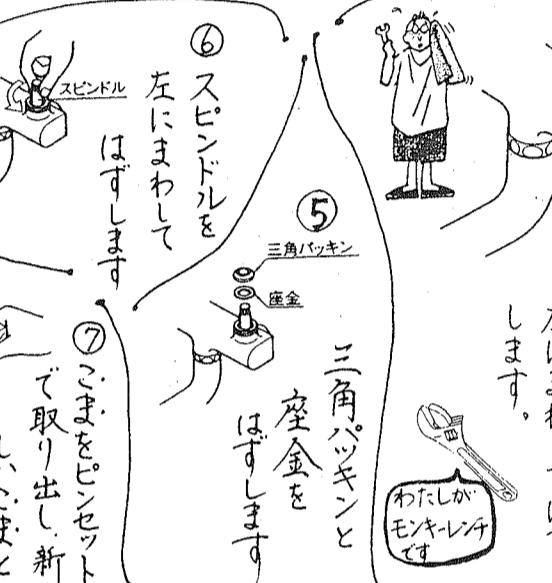 します。
わたしが
モンキーレンチ
です
⑤
三角パッキン
座金
三角パッキンと
座金を
はずします
⑥
スピンドル
スピンドルを
左にまわして
はずします
⑦
こまをピンセット
で取り出し、新